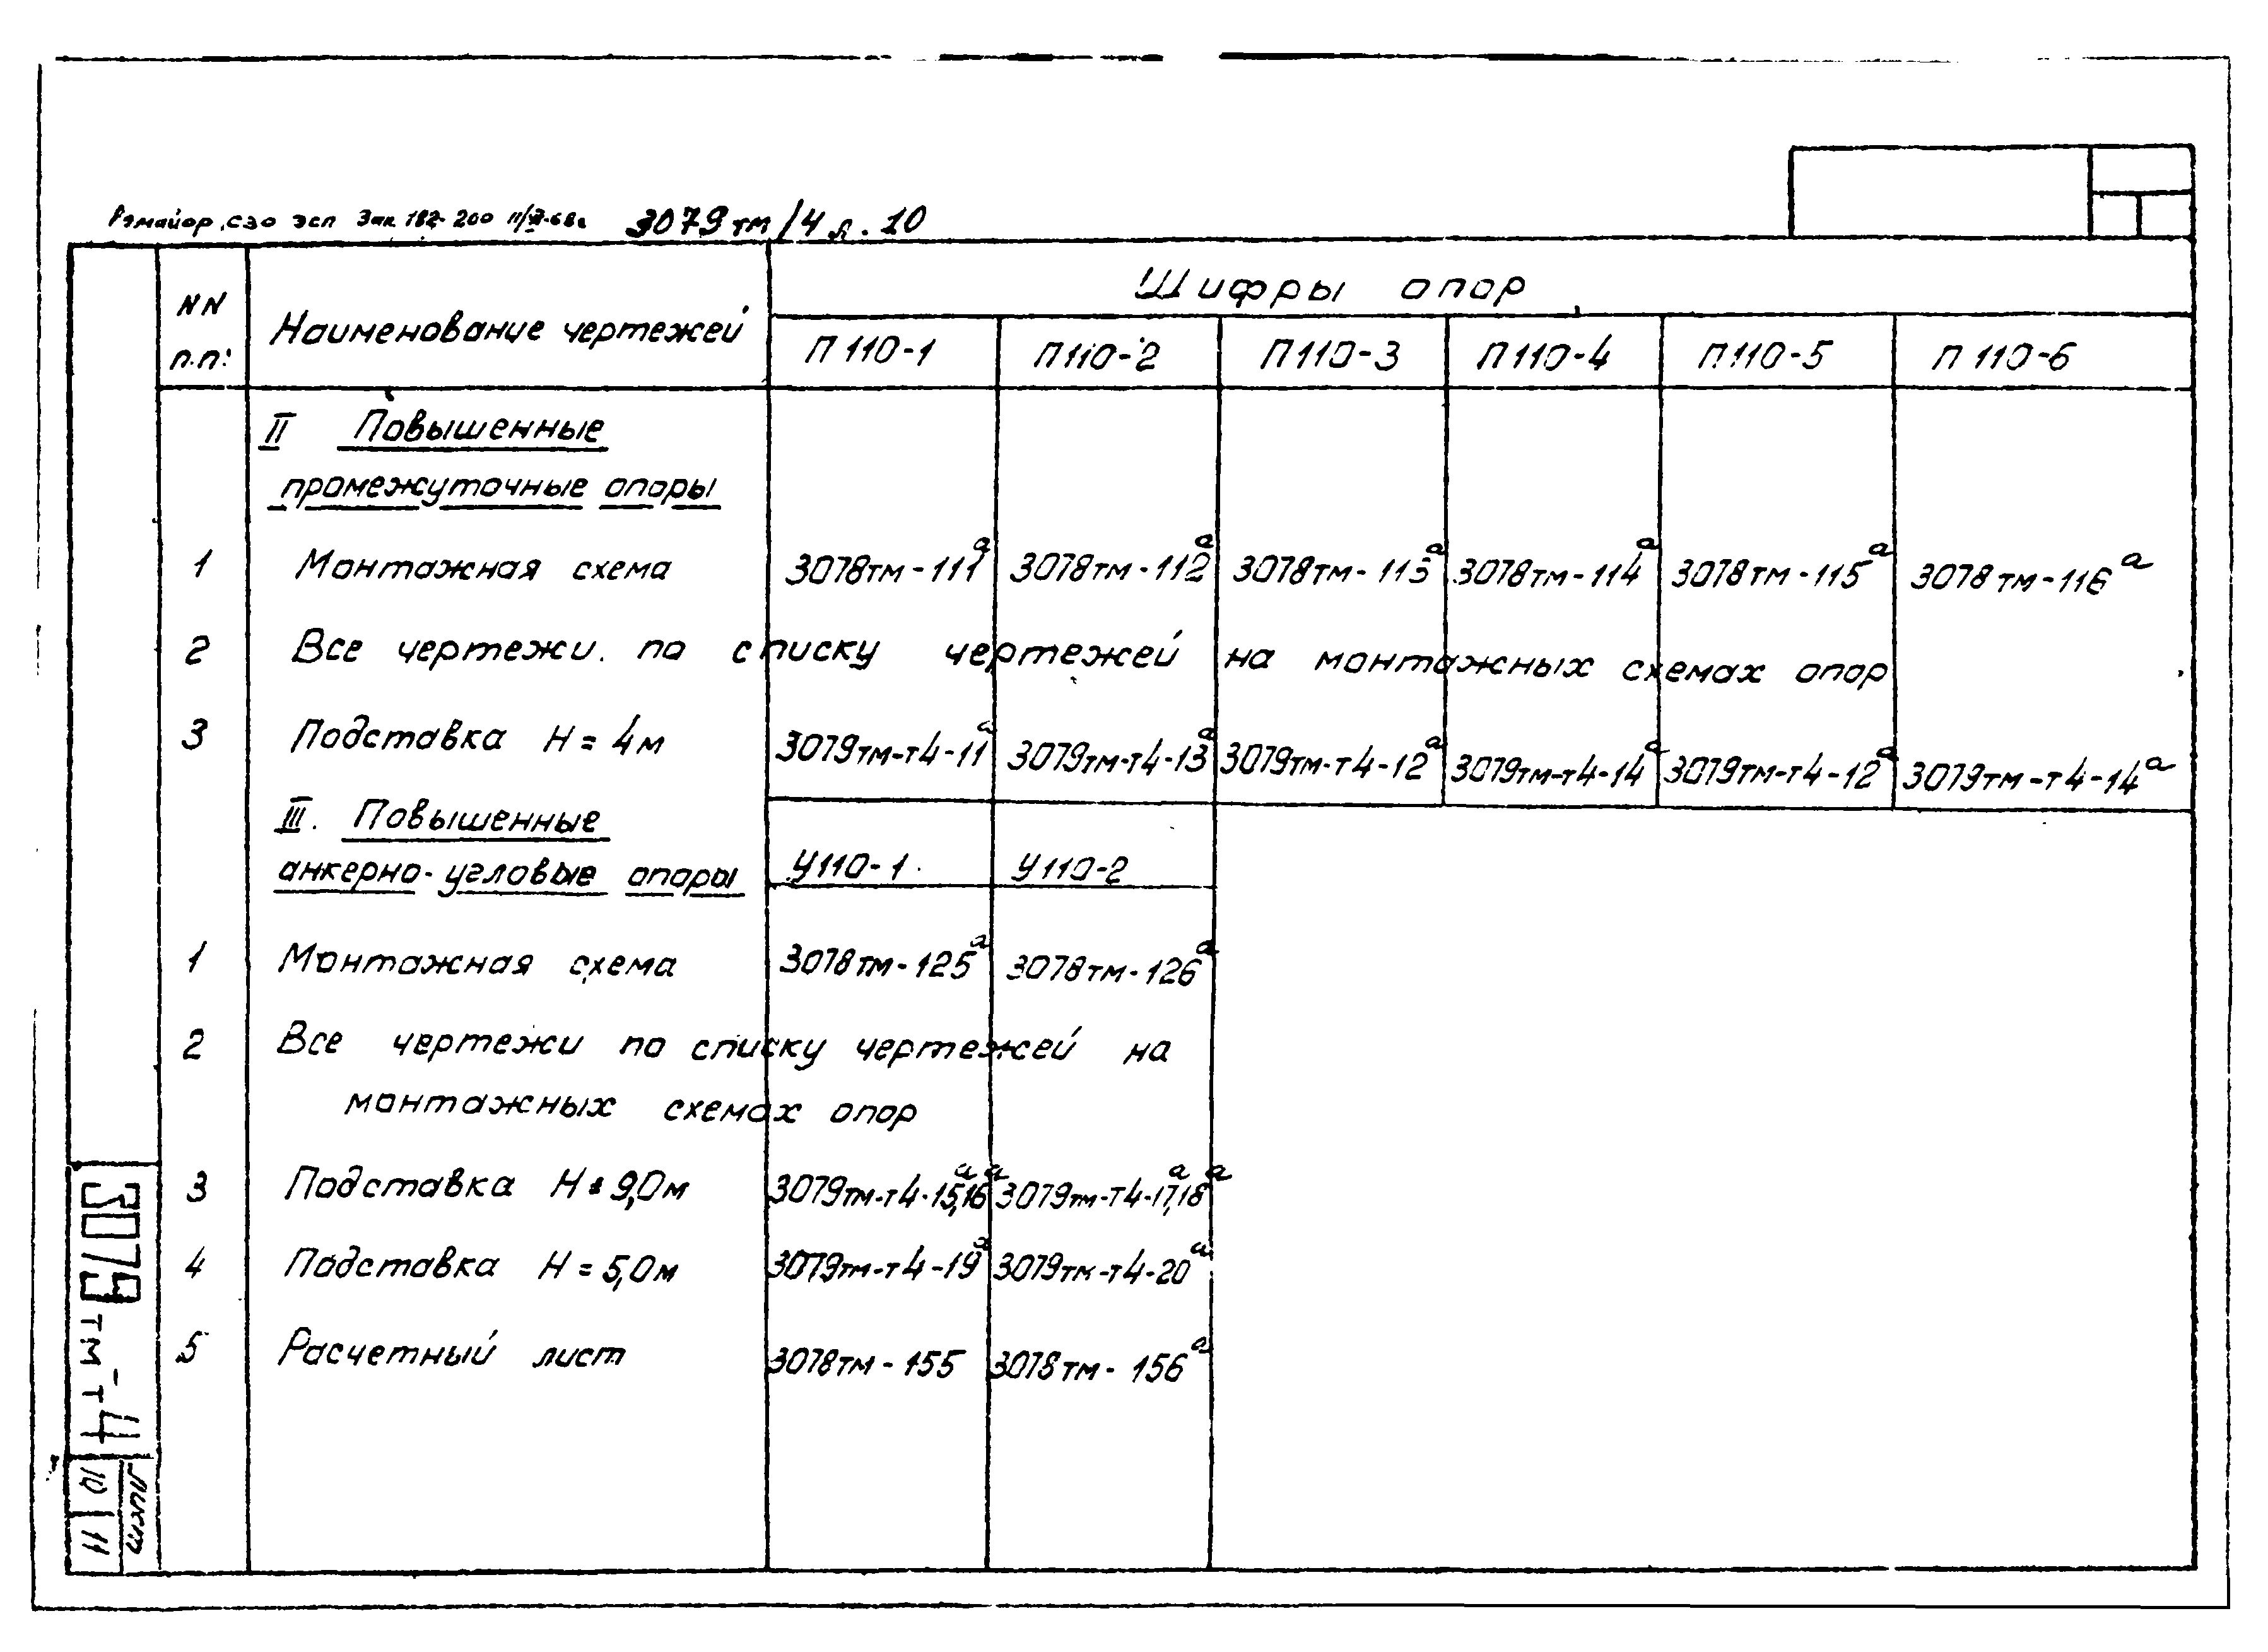 3079тм/4 л. 10
Шифры опор
NN п.п. Наименование чертежей П110-1 П110-2 П110-3 П110-4 П110-5 П110-6
II Повышенные
промежуточные опоры
1 Монтажная схема 3078тм-111а 3078тм-112а 3078тм-113а 3078тм-114а 3078тм-115а 3078тм-116а
2 Все чертежи по списку чертежей на монтажных схемах опор
3 Подставка Н=4м 3079тм-т4-11а 3079тм-т4-13а 3079тм-т4-12а 3079тм-т4-14а 3079тм-т4-12а 3079тм-т4-14а
III. Повышенные
анкерно-угловые опоры У110-1 У110-2
1 Монтажная схема 3078тм-125а 3078тм-126а
2 Все чертежи по списку чертежей на
монтажных схемах опор
3 Подставка Н=9,0м 3079тм-т4-15а,16а 3079тм-т4-17а,18а
4 Подставка Н=5,0м 3079тм-т4-19а 3079тм-т4-20а
5 Расчетный лист 3078тм-155 3078тм-156а
3079тм-т4
10 11